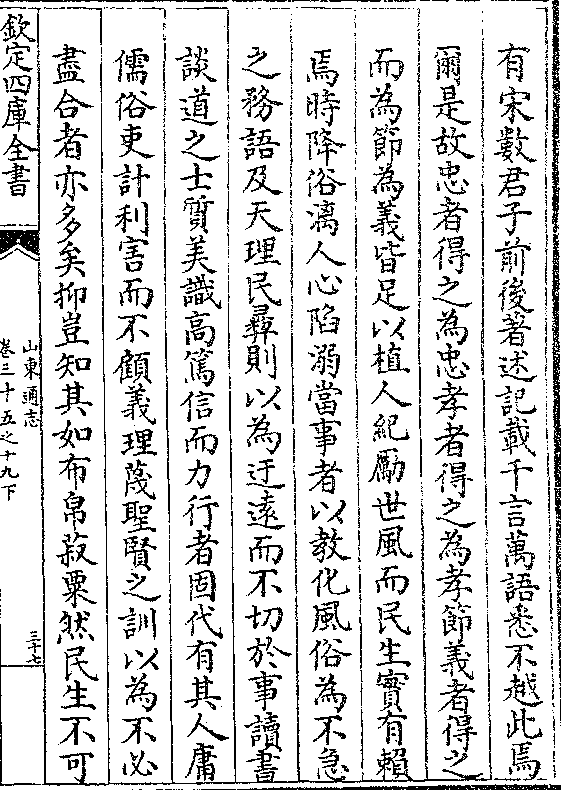 有宋數君子前後著述記載千言萬語悉不越此焉
爾是故忠者得之為忠孝者得之為孝節義者得之
而為節為義皆足以植人紀勵世風而民生實有賴
焉時降俗漓人心陷溺當事者以教化風俗為不急
之務語及天理民彝則以為迂遠而不切於事讀書
談道之士質美識高篤信而力行者固代有其人庸
儒俗吏計利害而不顧義理蔑聖賢之訓以為不必
盡合者亦多矣抑豈知其如布帛菽粟然民生不可
欽定四庫全書
山東通志
卷三十五之十九下
三十七